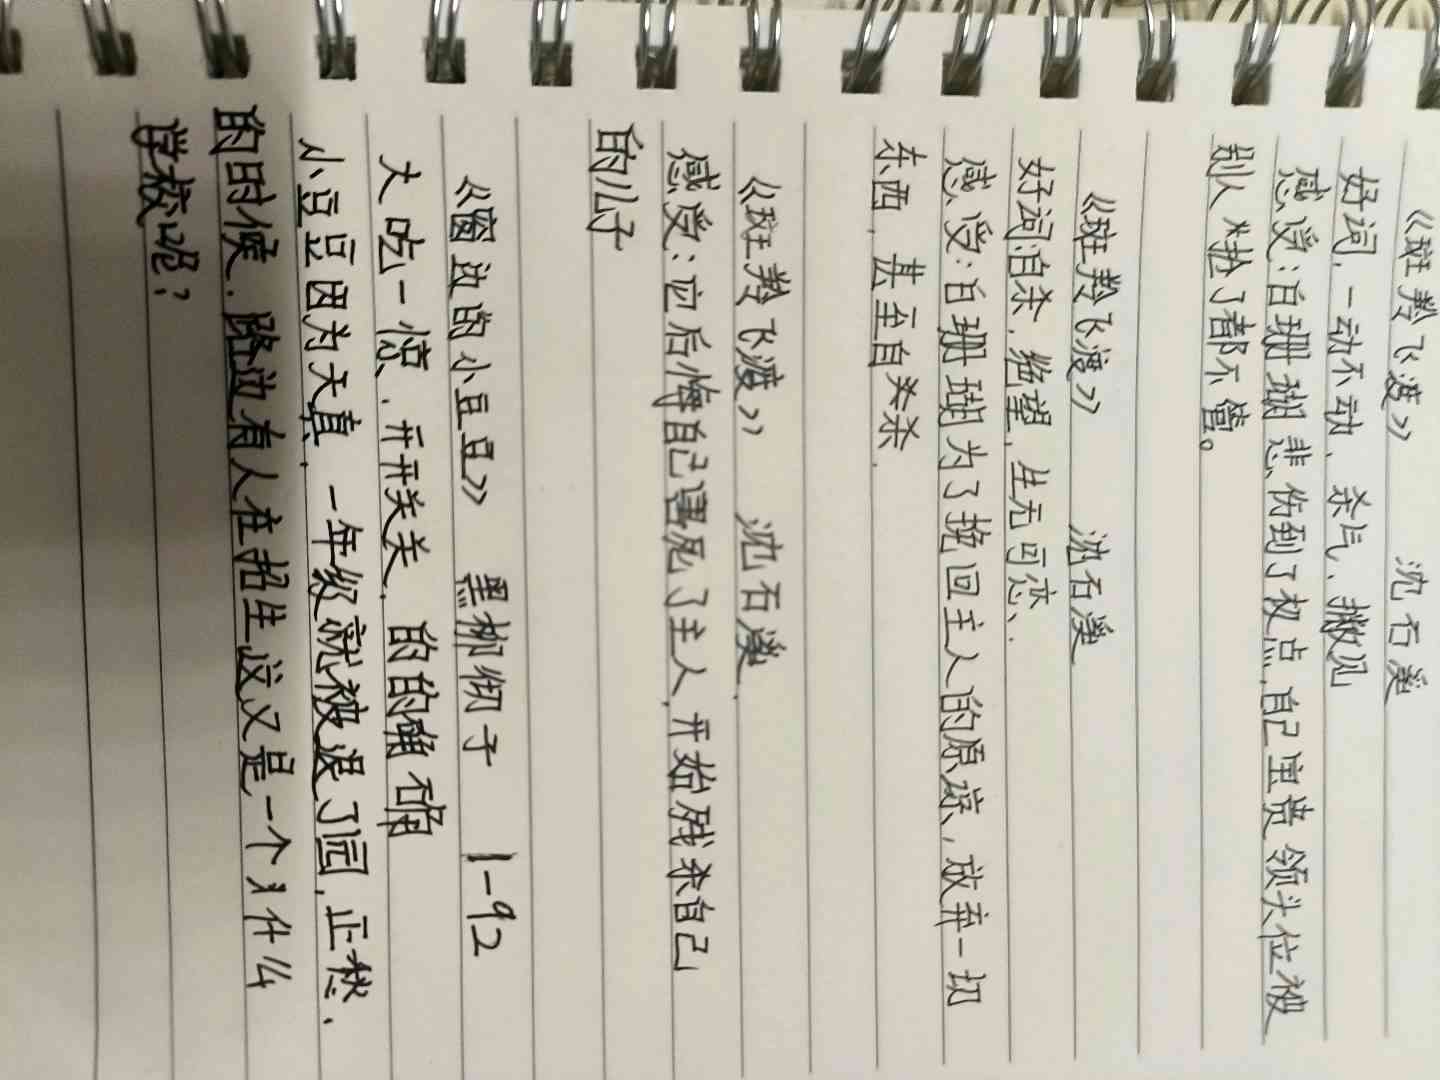 《斑羚飞渡》 沈石溪
好词,一动不动、杀气、撇见
感受:白珊瑚悲伤到了极点,自己宝贵领头位被
别人抢了都不管。
《斑羚飞渡》 沈石溪
好词自杀,绝望,生无可恋.
感受:白珊瑚为了挽回主人的原谅,放弃一切
东西,甚至自杀.
《斑羚飞渡》 沈石溪.
感受:它后悔自己害死了主人,开始残杀自己
的儿子
《窗边的小豆豆》 黑柳彻子 1-92
大吃一惊、开开关关,的的确确
小豆豆因为天真,一年级就被退了园,正愁.
的时候.路边有人在招生这又是一个什么
学校呢?